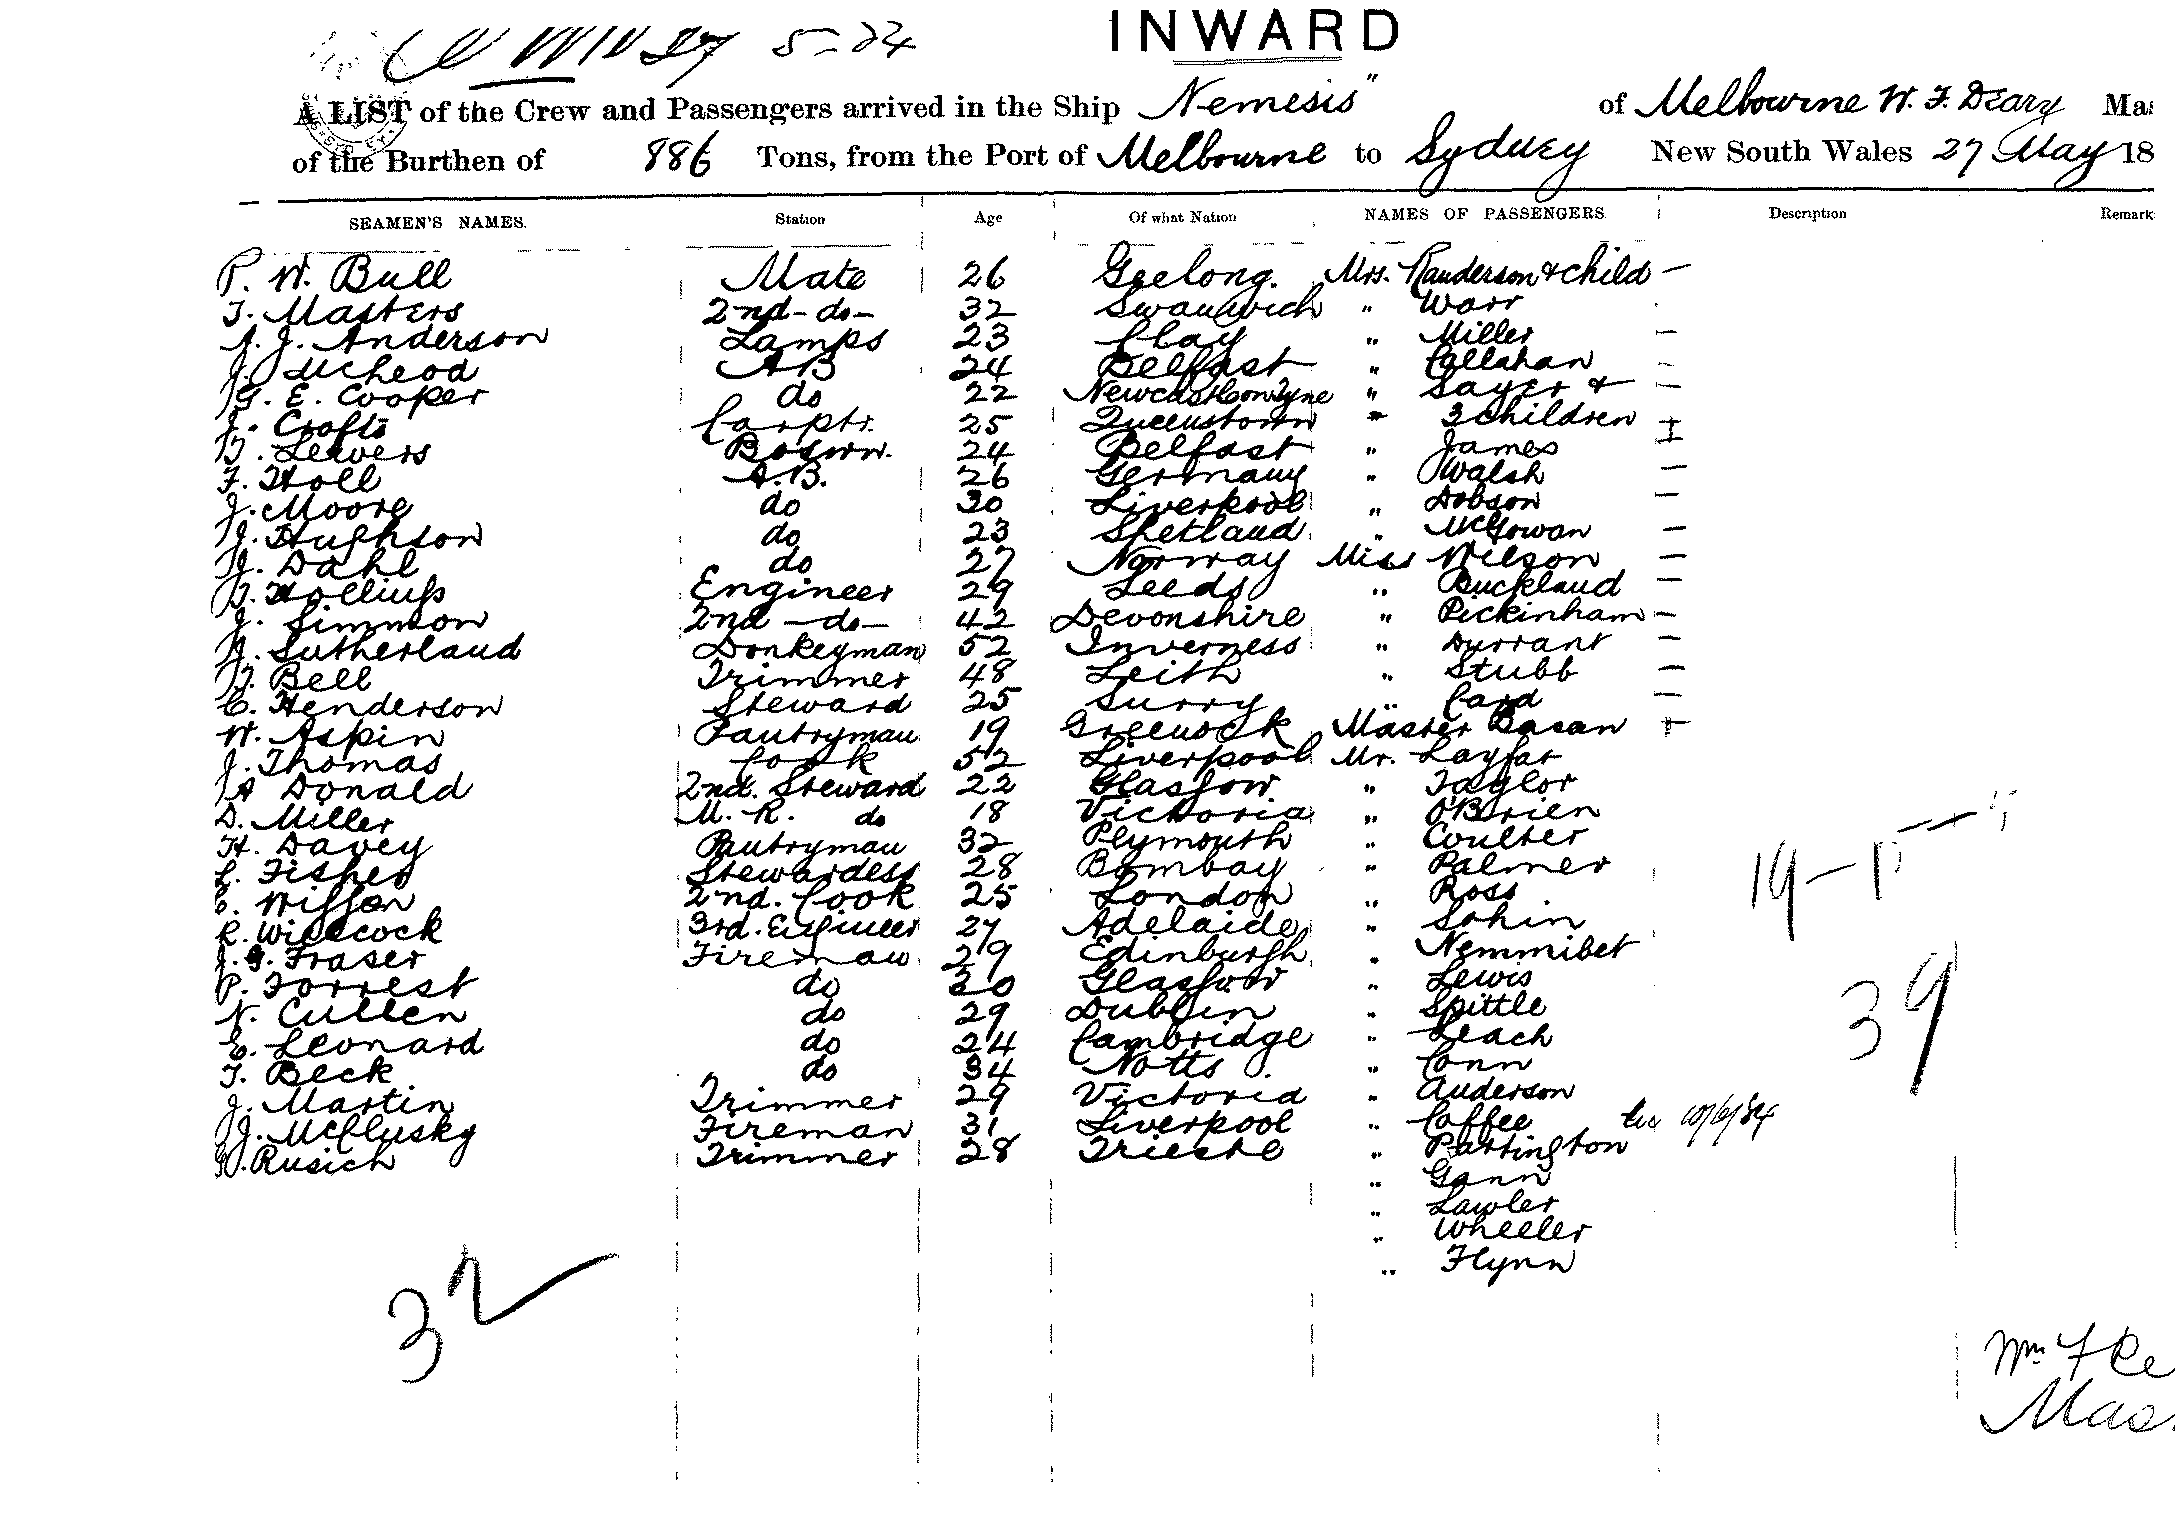 INWARD
5-24
A LIST of the Crew and Passengers arrived in the Ship "Nemesis" of Melbourne W. F. Deary Mas
of the Burthen of 886 Tons, from the Port of Melbourne to Sydney New South Wales 27 May 18
SEAMEN'S NAMES. Station Age Of what Nation NAMES OF PASSENGERS. Description Remark
P. W. Bull Mate 26 Geelong. Mrs. Randerson & child —
T. Masters 2nd - do - 32 Swanwich " Warr
A. J. Anderson Lamps 23 Clay " Miller —
J. McLeod AB 24 Belfast " Callahan –
G. E. Cooper do 22 Newcastleontyne " Sayer & —
J. Crofts Carptr. 25 Queenstown " 3 children
D. Lewers Boswn. 24 Belfast " James
F. Holl A.B. 26 Germany " Walsh —
J. Moore do 30 Liverpool " Dobson —
J. Hughson do 23 Shetland " McGowan —
J. Dahl do 27 Norway Miss Wilson —
Engineer 29 Leeds " Buckland —
J. Simmson 2nd - do - 42 Devonshire " Peckinham —
A. Sutherland Donkeyman 52 Inverness " Durrant —
D. Bell Trimmer 48 Leith " Stubb —
C. Henderson Steward 25 Surry " Card —
W. Aspin Pantryman 19 Greenock Master Basan +
J. Thomas Cook 52 Liverpool Mr. Layfat
A Donald 2nd. Steward 22 Glasgow " Taylor
D. Miller M. R. do 18 Victoria " O'Brien
H. Davey Pantryman 32 Plymouth " Coulter
L. Fisher Stewardess 28 Bombay " Palmer
2nd. Cook 25 London " Ross
R. Willcock 3rd. Engineer 27 Adelaide " Sohin
J. G. Fraser Fireman 29 Edinburgh " Nemmibet
P. Forrest do 30 Glasgow " Lewis
N. Cullen do 29 Dublin " Spittle
E. Leonard do 24 Cambridge " Leach
T. Beck do 34 Notts. " Conn
J. Martin Trimmer 29 Victoria " Anderson
J. McClusky Fireman 31 Liverpool " Coffee
Rusich Trimmer 28 Trieste " Partington
" Gann
" Lawler
" Wheeler
" Flynn
19 -
39
32
Wm F
Mas